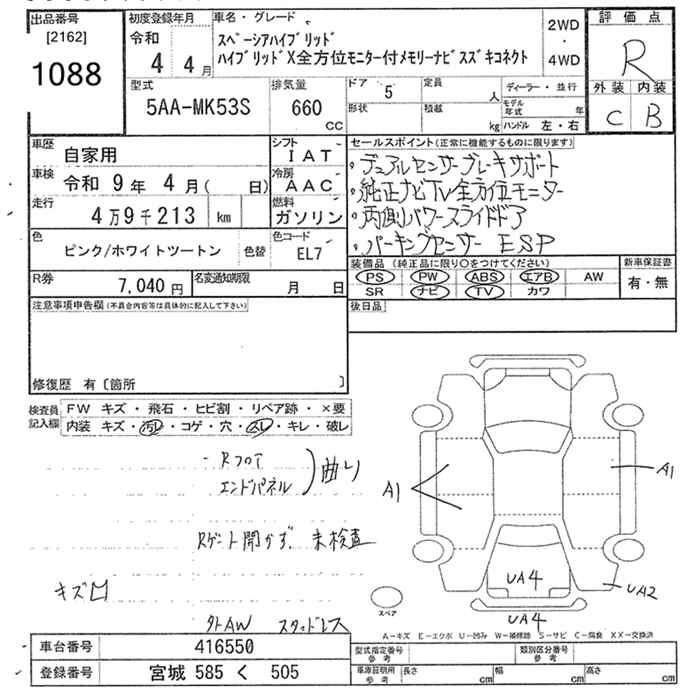 出品番号
[2162]
1088
初度登録年月
令和
4 4月
車名・グレード
スペーシアハイブリッド
ハイブリッドX全方位モニター付メモリーナビスズキコネクト
2WD
・
4WD
評価点
R
外装 内装
C B
型式
5AA-MK53S
排気量
660
CC
ドア 5
定員 人
形状
積載 kg
ディーラー・並行
モデル年式 年
ハンドル 左・右
車歴 自家用
シフト IAT
車検 令和 9年 4月( 日)
冷房 AAC
走行 4万9千213 km
燃料 ガソリン
色 ピンク/ホワイトツートン 色替
色コード EL7
R券 7,040円
名変通知期限 月 日
セールスポイント(正常に機能するものに限ります)
・デュアルセンサーブレーキサポート
・純正ナビTV全方位モニター
・両側パワースライドドア
・パーキングセンサー ESP
装備品(純正品に限り○をつけてください)
PS PW ABS エアB AW
SR ナビ TV カワ
新車保証書
有・無
後日品
注意事項申告欄(不具合内容等は具体的に記入して下さい)
修復歴 有〔箇所 〕
検査員記入欄
FW キズ・飛石・ヒビ割・リペア跡・×要
内装 キズ・汚レ・コゲ・穴・スレ・キレ・破レ
Rフロア
エンドパネル
曲り
Rゲート開かず、未検査
キズ
外AW スタッドレス
A1
A1
UA4
UA2
UA4
スペア
A-キズ E-エクボ U-凹み W-補修跡 S-サビ C-腐食 XX-交換済
車台番号 416550
登録番号 宮城 585 く 505
型式指定番号 参考
類別区分番号 参考
車庫証明用 参考
長さ cm
幅 cm
高さ cm